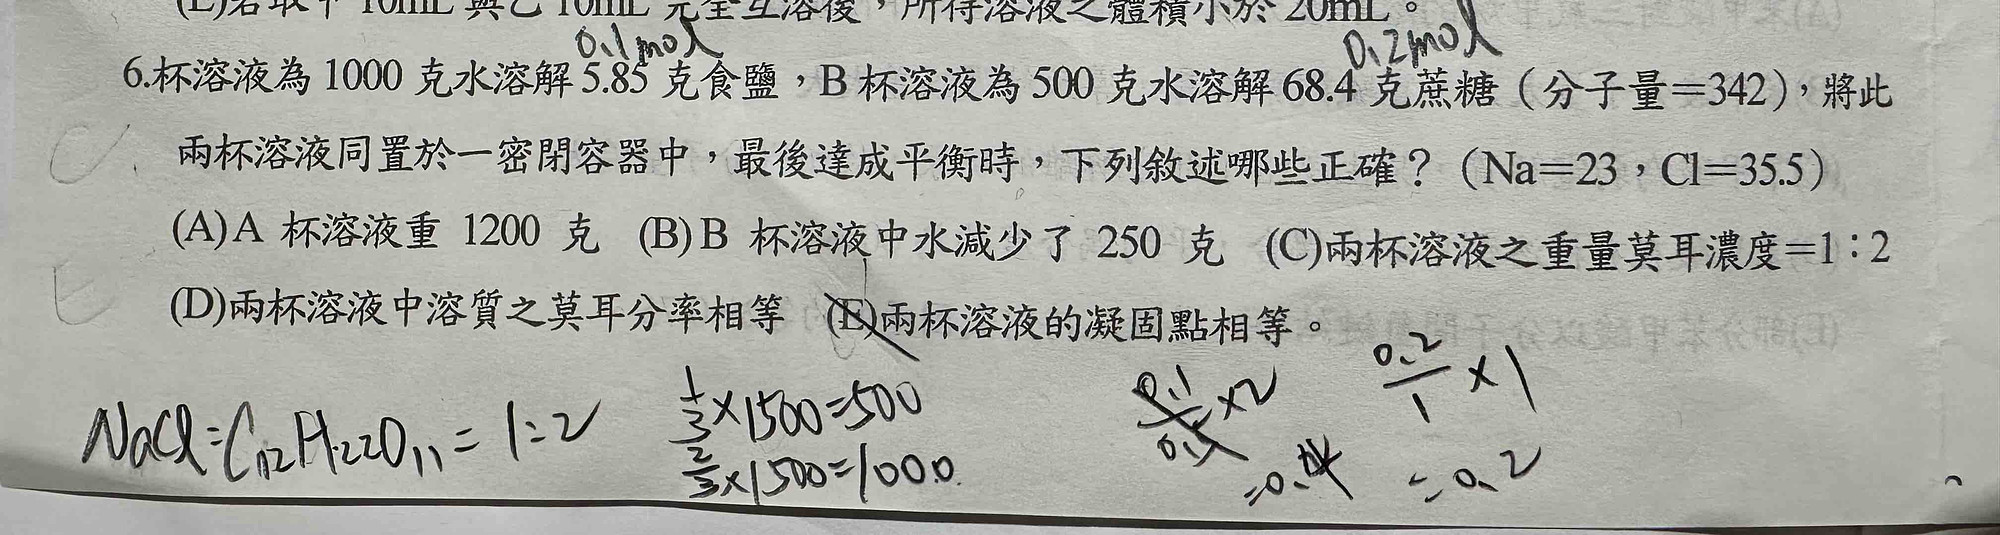 (E)若取甲 10mL 與乙 10mL 完全互溶後，所得溶液之體積小於 20mL。
0.1mol 0.2mol
6.杯溶液為 1000 克水溶解 5.85 克食鹽，B 杯溶液為 500 克水溶解 68.4 克蔗糖（分子量＝342），將此
兩杯溶液同置於一密閉容器中，最後達成平衡時，下列敘述哪些正確？（Na＝23，Cl＝35.5）
(A)A 杯溶液重 1200 克 (B)B 杯溶液中水減少了 250 克 (C)兩杯溶液之重量莫耳濃度=1：2
(D)兩杯溶液中溶質之莫耳分率相等 (E)兩杯溶液的凝固點相等。
NaCl:C12H22O11=1:2
1/3×1500=500
2/3×1500=1000
0.2/1×1
=0.2